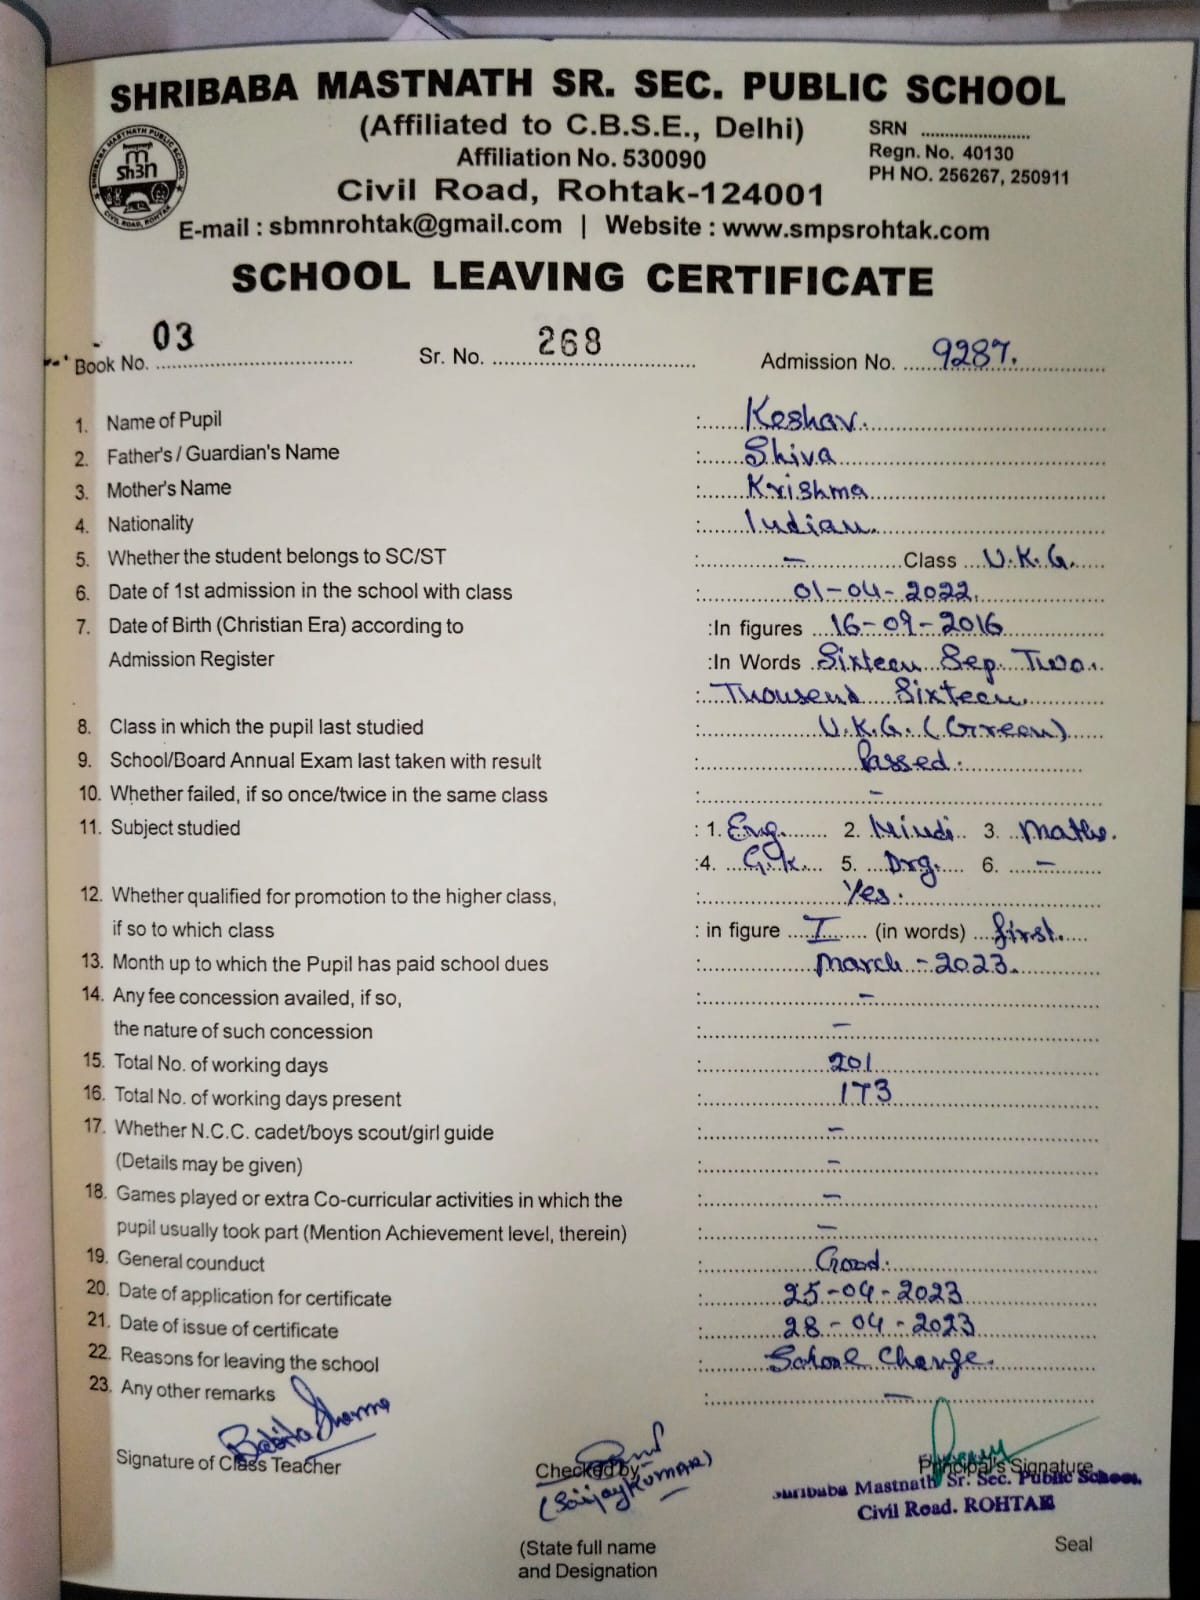 SHRIBABA MASTNATH SR. SEC. PUBLIC SCHOOL
(Affiliated to C.B.S.E., Delhi)
SRN ........................
Affiliation No. 530090
Regn. No. 40130
PH NO. 256267, 250911
Civil Road, Rohtak-124001
E-mail : sbmnrohtak@gmail.com | Website : www.smpsrohtak.com
SCHOOL LEAVING CERTIFICATE
Book No. 03 Sr. No. 268 Admission No. 9287.
1. Name of Pupil : Keshav.
2. Father's / Guardian's Name : Shiva
3. Mother's Name : Krishma
4. Nationality : Indian.
5. Whether the student belongs to SC/ST : – Class U.K.G.
6. Date of 1st admission in the school with class : 01-04-2022.
7. Date of Birth (Christian Era) according to :In figures 16-09-2016
Admission Register :In Words Sixteen Sep. Two
: Thousend Sixteen
8. Class in which the pupil last studied : U.K.G. (Green)
9. School/Board Annual Exam last taken with result : Passed.
10. Whether failed, if so once/twice in the same class : –
11. Subject studied : 1. Eng. 2. Hindi 3. Maths.
:4. G.K. 5. Drg. 6. –
12. Whether qualified for promotion to the higher class, : Yes.
if so to which class : in figure I (in words) first.
13. Month up to which the Pupil has paid school dues : March - 2023.
14. Any fee concession availed, if so, : –
the nature of such concession : –
15. Total No. of working days : 201
16. Total No. of working days present : 173
17. Whether N.C.C. cadet/boys scout/girl guide : –
(Details may be given) : –
18. Games played or extra Co-curricular activities in which the : –
pupil usually took part (Mention Achievement level, therein) : –
19. General counduct : Good.
20. Date of application for certificate : 25-04-2023
21. Date of issue of certificate : 28-04-2023
22. Reasons for leaving the school : School Change.
23. Any other remarks : –
Babita Sharma
Signature of Class Teacher Checked by Principal's Signature
Shribaba Mastnath Sr. Sec. Public School
Civil Road. ROHTAK
(State full name Seal
and Designation